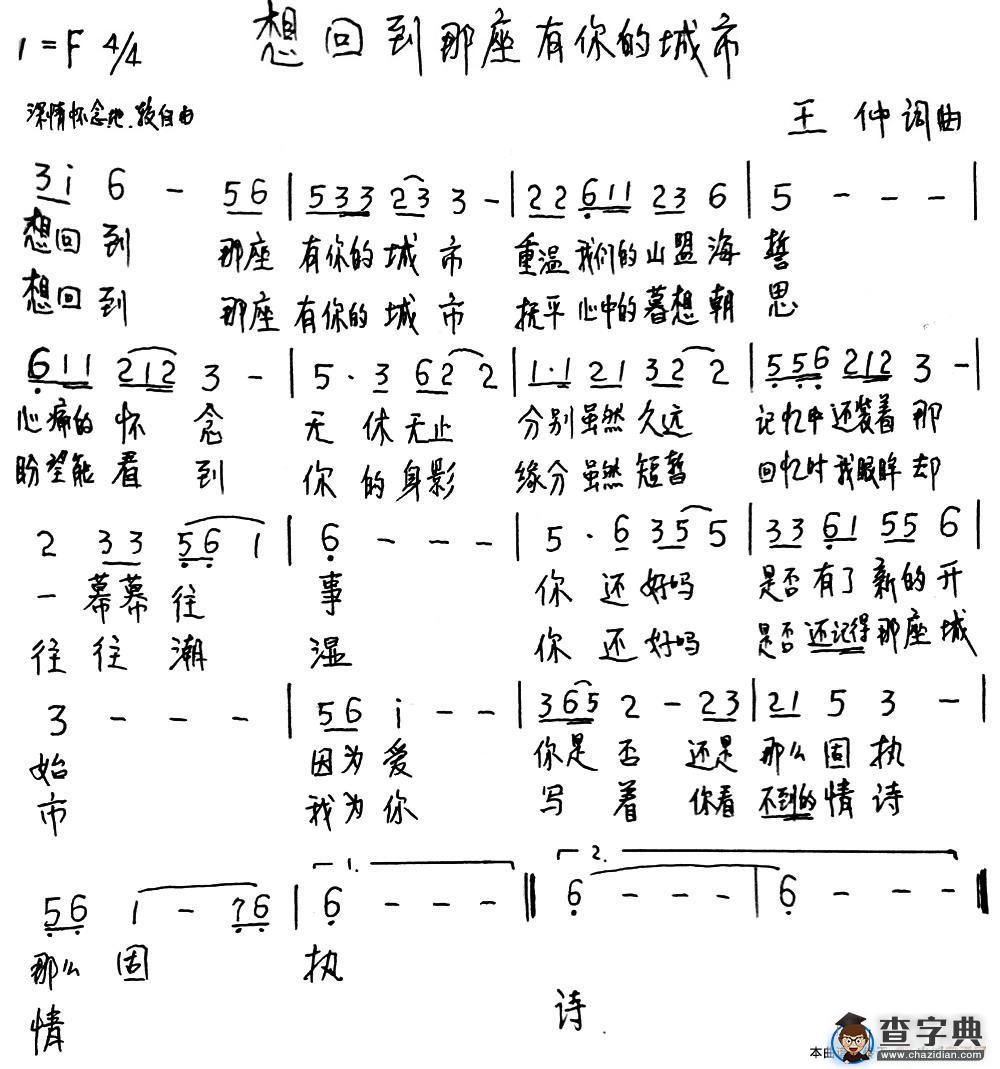 想回到那座有你的城市
1=F 4/4
深情怀念地、较自由
王 仲 词曲
3 i 6 - 5 6 | 5 3 3 2 3 3 - | 2 2 6 1 1 2 3 6 | 5 - - - |
想回到 那座 有你的城市 重温我们的山盟海誓
想回到 那座 有你的城市 抚平心中的暮想朝思
6 1 1 2 1 2 3 - | 5 · 3 6 2 2 | 1 · 1 2 1 3 2 2 | 5 5 6 2 1 2 3 - |
心痛的怀念 无休无止 分别虽然久远 记忆中还装着那
盼望能看到 你的身影 缘分虽然短暂 回忆时我眼眸却
2 3 3 5 6 1 | 6 - - - | 5 · 6 3 5 5 | 3 3 6 1 5 5 6 |
一幕幕往事 你还好吗 是否有了新的开
往往潮湿 你还好吗 是否还记得那座城
3 - - - | 5 6 i - - | 3 6 5 2 - 2 3 | 2 1 5 3 - |
始 因为爱 你是否 还是那么固执
市 我为你 写着 你看不到的情诗
1. 2.
5 6 1 - 7 6 | 6 - - - || 6 - - - | 6 - - - ||
那么固 执
情 诗
本曲
查字典
www.chazidian.com